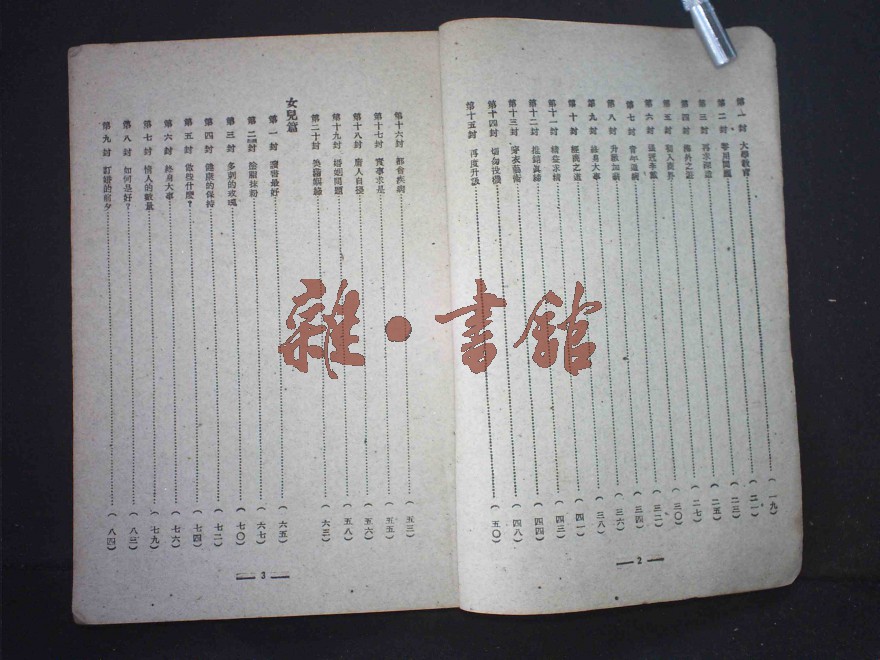 第一封 大學教育 (一九)
第二封 零用問題 (二一)
第三封 再求深造 (二三)
第四封 海外之遊 (二五)
第五封 (二七)
第六封 張冠李戴 (三〇)
第七封 青年通病 (三二)
第八封 升級加薪 (三四)
第九封 終身大事 (三六)
第十封 經商之道 (三八)
第十一封 精益求精 (四一)
第十二封 推銷真諦 (四三)
第十三封 穿衣藝術 (四四)
第十四封 切勿投機 (四八)
第十五封 再度升級 (五〇)
2
第十六封 都會疾病 (五三)
第十七封 實事求是 (五五)
第十八封 庸人自擾 (五六)
第十九封 婚姻問題 (五八)
第二十封 美滿姻緣 (六三)
女兒篇
第一封 讀書最好 (六五)
第二封 塗脂抹粉 (六七)
第三封 多刺的玫瑰 (七〇)
第四封 健康的保持 (七二)
第五封 做些什麼? (七四)
第六封 終身大事 (七六)
第七封 情人的數量 (七九)
第八封 如何是好? (八三)
第九封 訂婚的前夕 (八四)
3
雜·書館